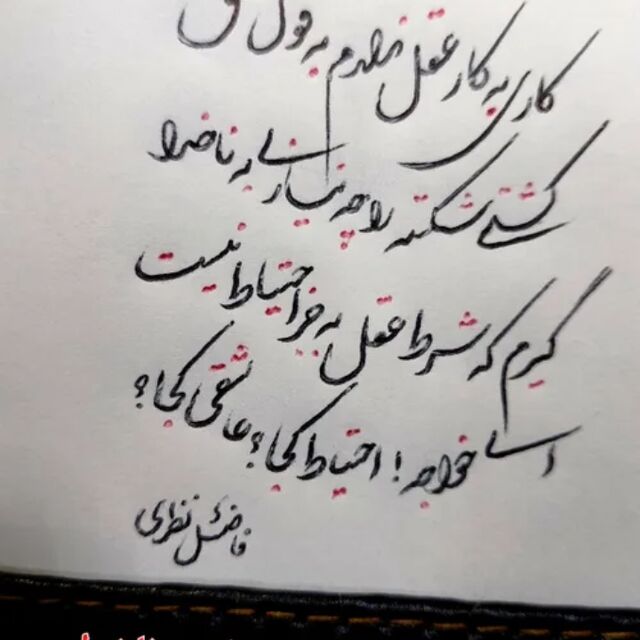 کاری به کار عقل ندارم به قول
کشتی شکسته را چه نیازی به ناخدا
گیرم که شرط عقل به جز احتیاط نیست
ای خواجه! احتیاط کجا؟ عاشقی کجا؟
فاضل نظری